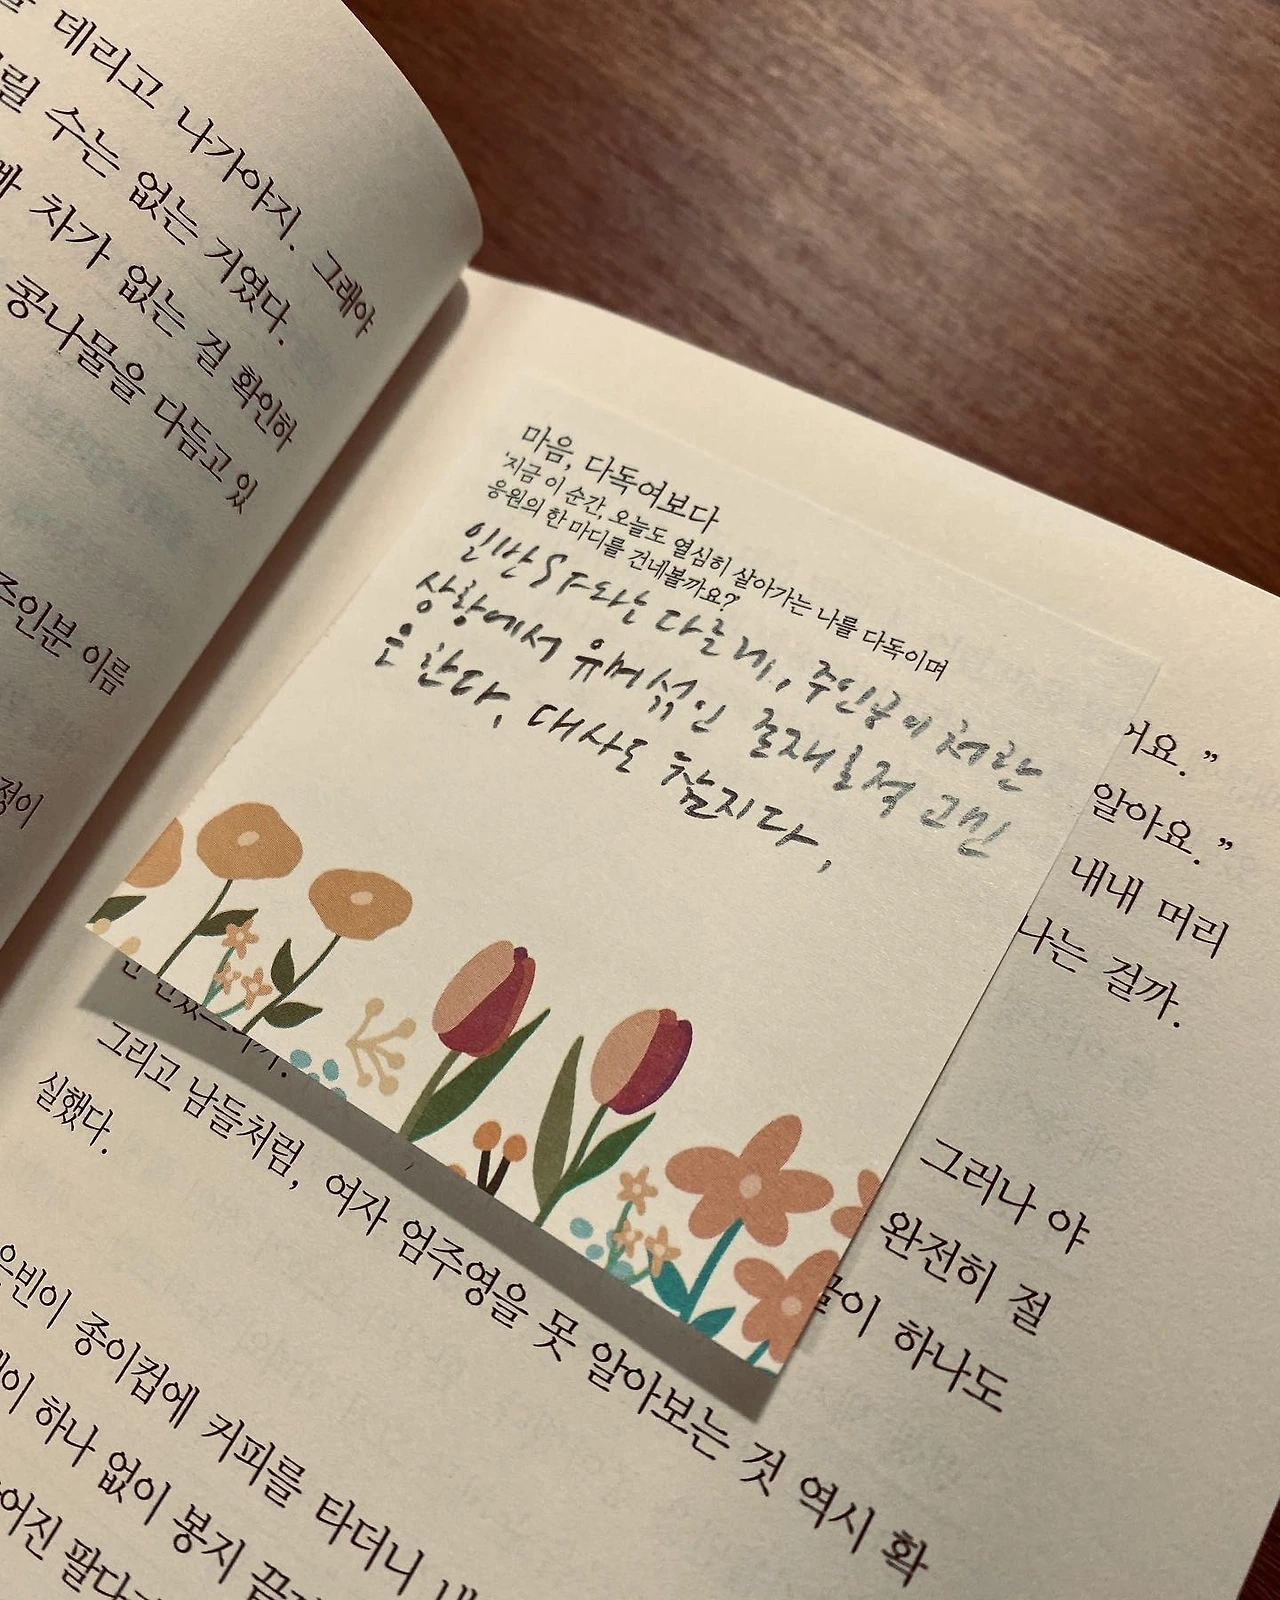 를 데리고 나가야지. 그래야
릴 수는 없는 거였다.
빠 차가 없는 걸 확인하
콩나물을 다듬고 있
주인분 이름
정이
마음, 다독여보다
'지금 이 순간, 오늘도 열심히 살아가는 나를 다독이며
응원의 한 마디를 건네볼까요?'
일반 SF와는 다르게, 주인공이 처한
상황에서 유머섞인 존재론적 고민
을 한다. 대사도 찰지다.
거요.”
알아요.”
내내 머리
나는 걸까.
그러나 야
완전히 절
굴이 하나도
그리고 남들처럼, 여자 엄주영을 못 알아보는 것 역시 확
실했다.
은빈이 종이컵에 커피를 타더니
이 하나 없이 봉지 끝
어진 팔다